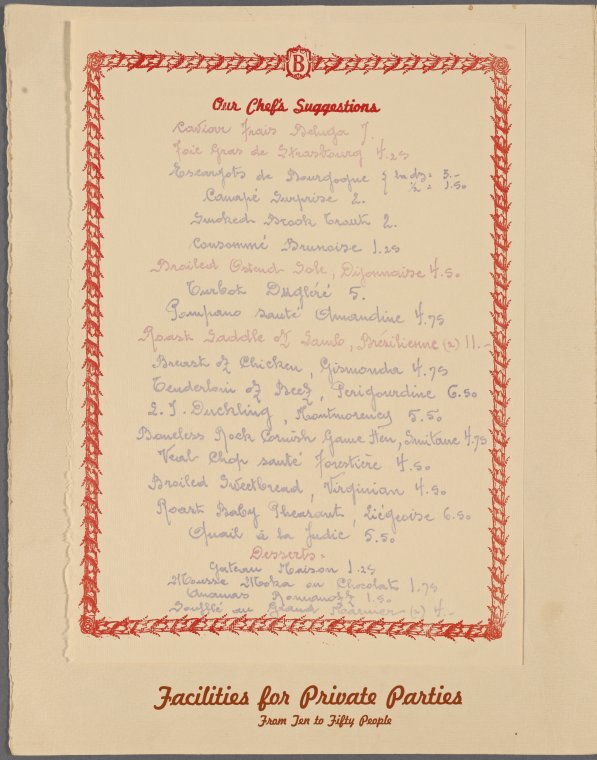 B
Our Chef's Suggestions
Caviar Frais Beluga 7.
Foie Gras de Strasbourg 4.25
Escargots de Bourgogne } la dz: 3.-
½ " 1.50
Canapé Surprise 2.
Smoked Brook Trout 2.
Consommé Brunoise 1.25
Broiled Ostend Sole, Dijonnaise 4.50
Turbot Dugléré 5.
Pompano sauté Amandine 4.75
Roast Saddle of Lamb, Brésilienne (2) 11.-
Breast of Chicken, Gismonda 4.75
Tenderloin of Beef, Perigourdine 6.50
L.I. Duckling, Montmorency 5.50
Boneless Rock Cornish Game Hen, Smitane 4.75
Veal Chop sauté Forestière 4.50
Broiled Sweetbread, Virginian 4.50
Roast Baby Pheasant, Liégeoise 6.50
Quail à la Judic 5.50
Desserts-
Gateau Maison 1.25
Mousse Moka ou Chocolat 1.75
Ananas Romanoff 1.50
Soufflé au Grand Marnier (2) 4.-
Facilities for Private Parties
From Ten to Fifty People